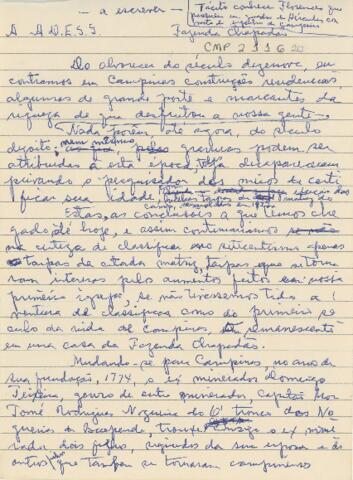 - a escrever -
Tácito conhece Florence que
A - A.D.E.S.S. Fazenda Chapadão
CMP 2.1.1.6
Do alvorecer do século dezenove, en
contramos em Campinas construções residenciais,
algumas de grande porte e marcantes da
riqueza de que desfrutou a nossa gente.
Nada porém, até agora, do século
dezoito; nem mesmo gravuras podem ser
atribuidas a esta época, desapareceram
privando o pesquisador dos meios de certi
ficar sua idade,
Estas, as conclusões a que temos che
gado até hoje, e assim continuariamos
na certeza de classificar em setecentistas apenas
taipas da citada matriz, taipas que se torna
ram internas pelos aumentos feitos em nossa
primeira igreja, se não tivessemos tido a
ventura de classificar como do primeiro sé
culo da vida de Campinas, remanescente
em uma casa da Fazenda Chapadão.
Mudando-se para Campinas, no ano de
sua fundação, 1774, o ex minerador Domingos
Teixeira, genro de outro minerador, capitão mor
Tomé Rodrigues Nogueira do Ó, tronco dos No
gueiras de Baependi, trouxe consigo o ex mine
rador dois filhos, seguidos da sua esposa e de
outros que tambem se tornaram campineiros